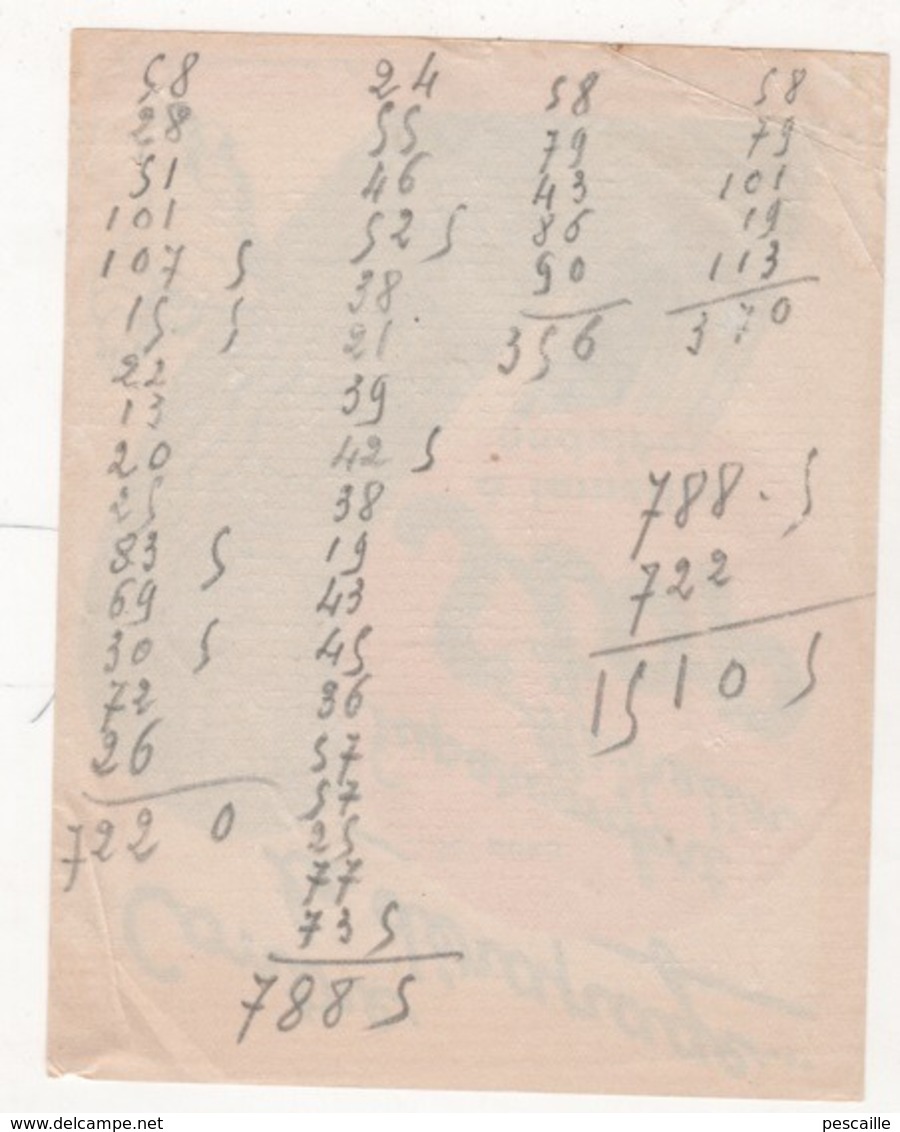 58
28
51
101
107 5
15 5
22
13
20
25
83 5
69
30 5
72
26
722 0
24
55
46
52 5
38
21
39
42 5
38
19
43
45
36
57
57
25
77
73 5
788 5
58
79
43
86
90
356
58
79
101
19
113
370
788.5
722
1510 5
delcampe.net
pescaille